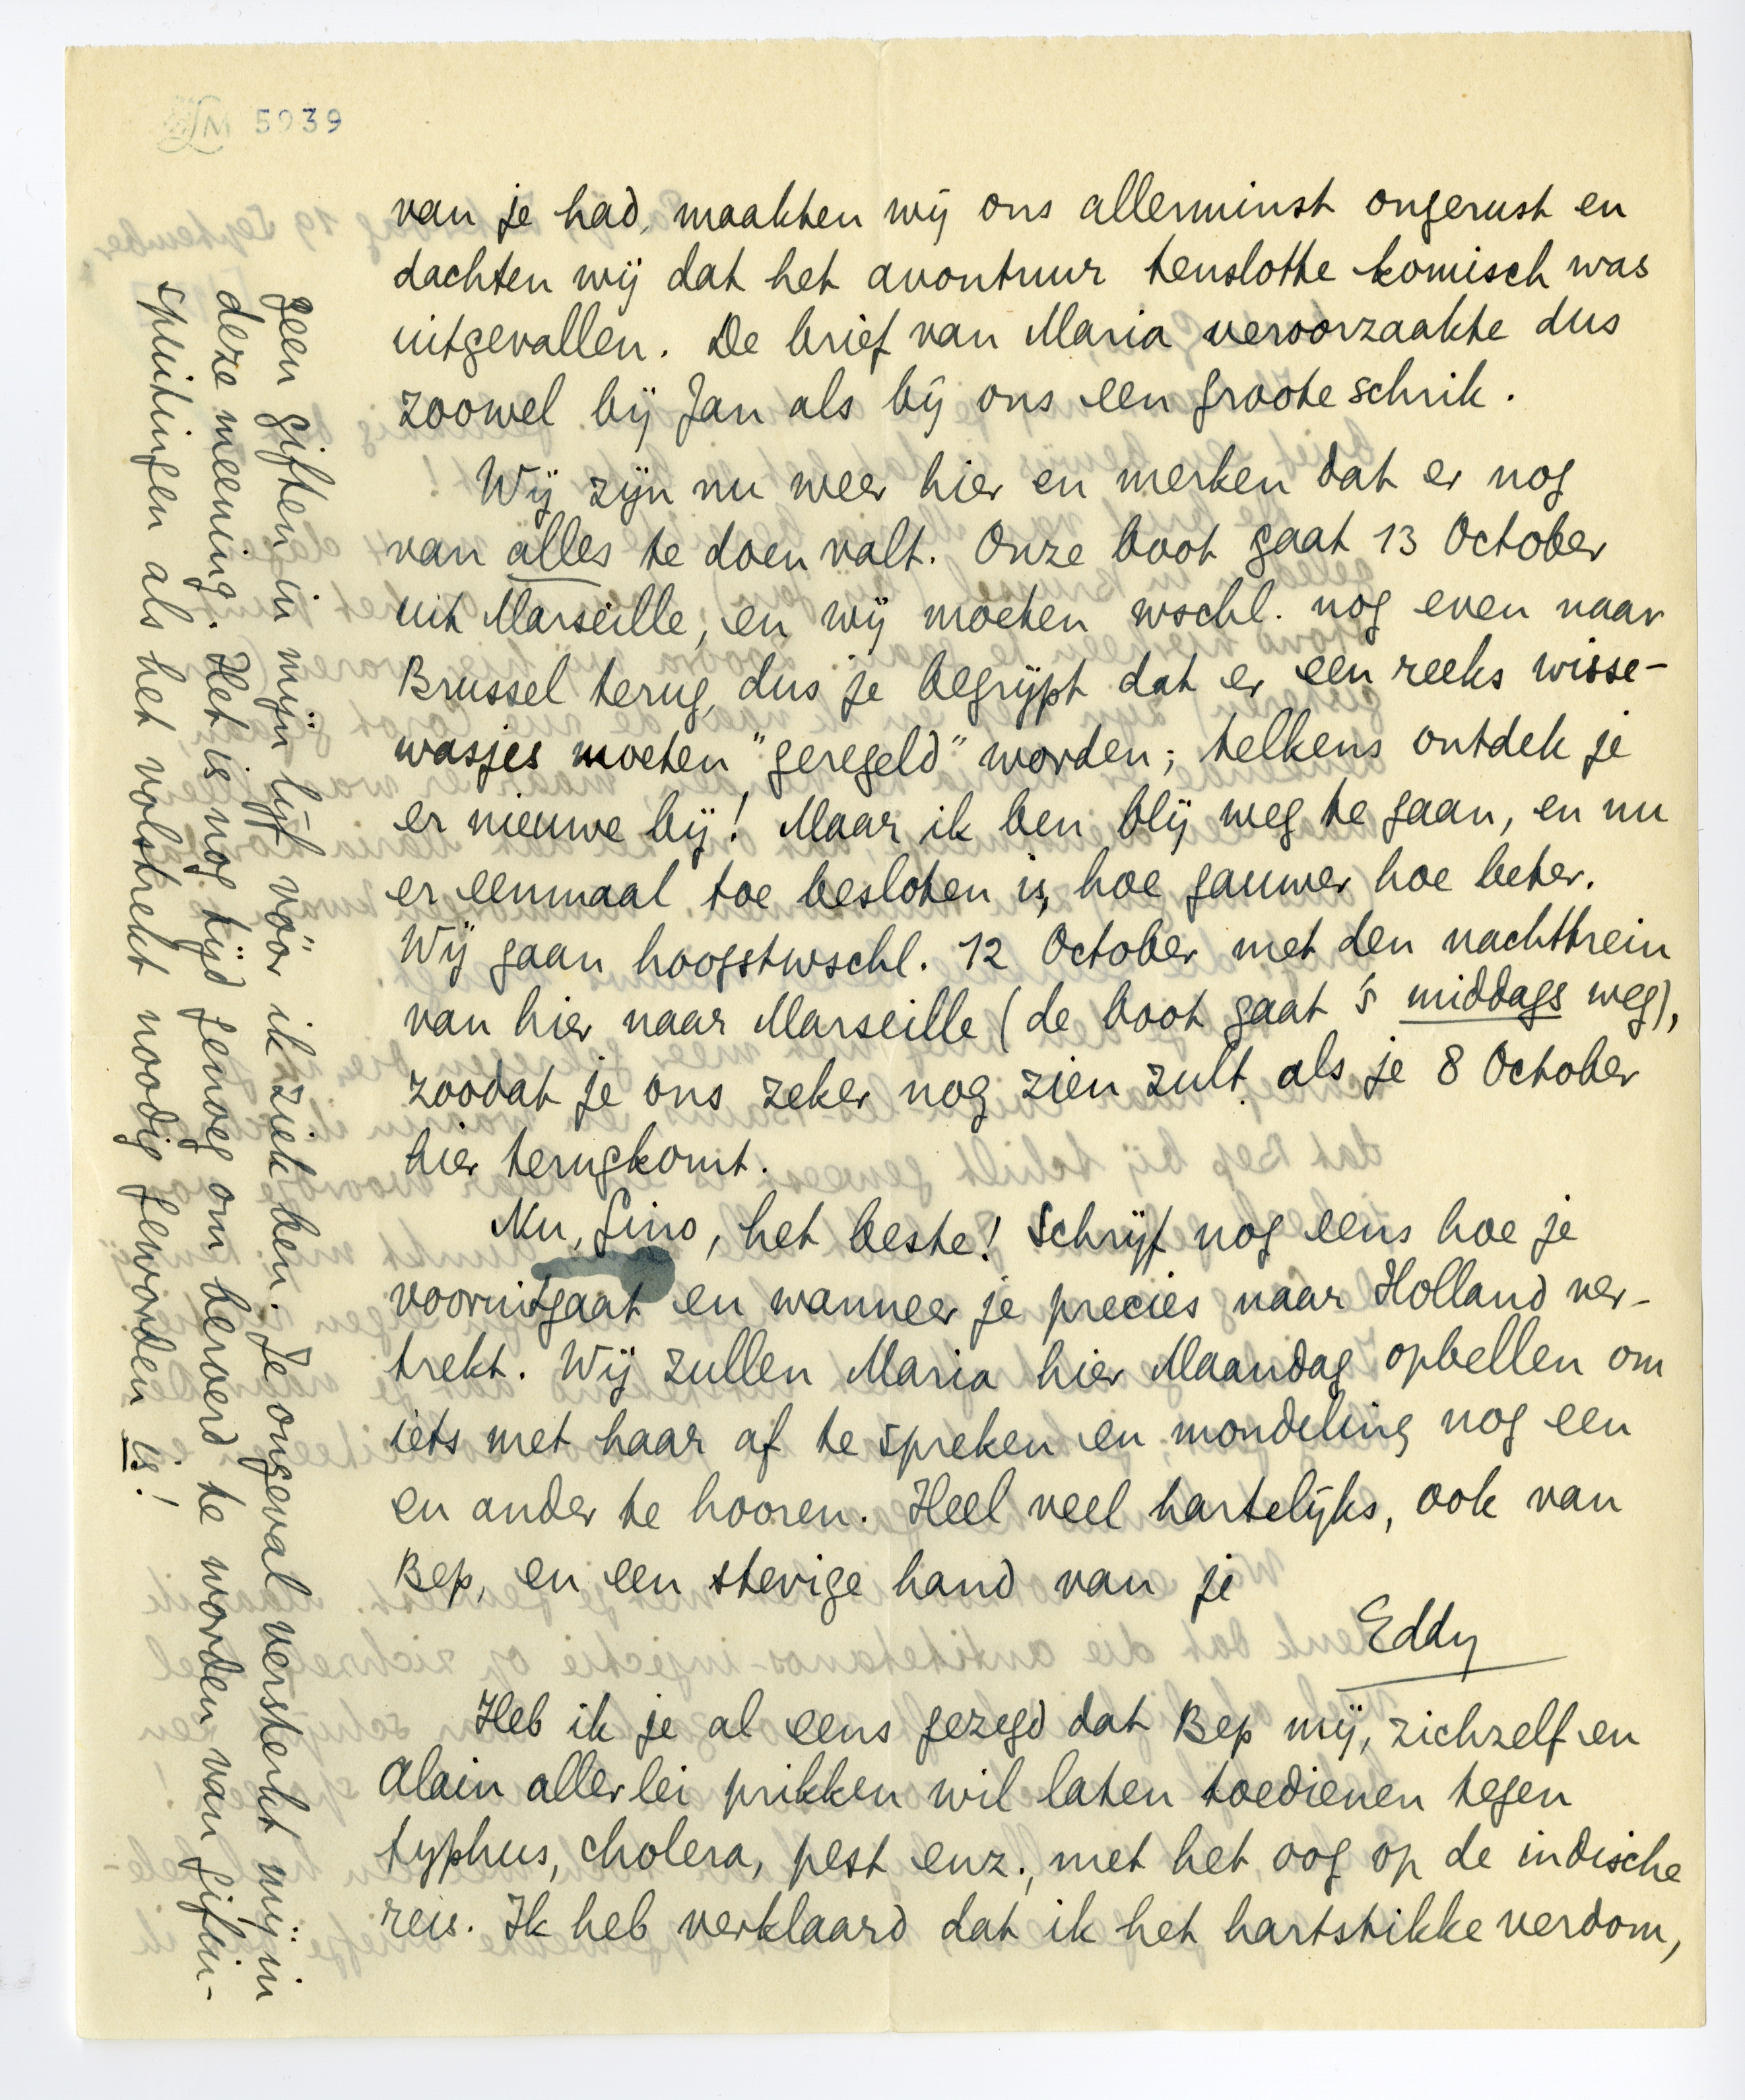 LM 5939
van je had, maakten wij ons allerminst ongerust en
dachten wij dat het avontuur tenslotte komisch was
uitgevallen. De brief van Maria veroorzaakte dus
zoowel bij Jan als bij ons een groote schrik.
Wij zijn nu weer hier en merken dat er nog
van alles te doen valt. Onze boot gaat 13 October
uit Marseille, en wij moeten wschl. nog even naar
Brussel terug, dus je begrijpt dat er een reeks wisse-
wasjes moeten "geregeld" worden; telkens ontdek je
er nieuwe bij! Maar ik ben blij weg te gaan, en nu
er eenmaal toe besloten is, hoe gauwer hoe beter.
Wij gaan hoogstwschl. 12 October met den nachttrein
van hier naar Marseille (de boot gaat 's middags weg),
zoodat je ons zeker nog zien zult als je 8 October
hier terugkomt.
Nu, Gino, het beste! Schrijf nog eens hoe je
vooruitgaat en wanneer je precies naar Holland ver-
trekt. Wij zullen Maria hier Maandag opbellen om
iets met haar af te spreken en mondeling nog een
en ander te hooren. Heel veel hartelijks, ook van
Bep, en een stevige hand van je
Eddy
Heb ik je al eens gezegd dat Bep mij, zichzelf en
Alain allerlei prikken wil laten toedienen tegen
typhus, cholera, pest enz., met het oog op de indische
reis. Ik heb verklaard dat ik het hartstikke verdom,
geen giften in mijn lijf vóór ik ziek ben. Je ongeval versterkt mij in
deze meening. Het is nog tijd genoeg om beroerd te worden van gifin-
spuitingen als het volstrekt noodig geworden is!